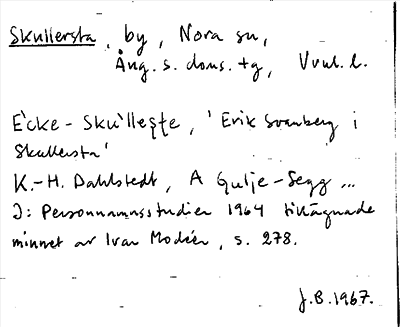 Skullersta, by, Nora sn,
Ång. s. doms. tg, Vnnl. l.
Ècke-Skùlleste, 'Erik Svanberg i
Skullersta'
K.-H. Dahlstedt, A Gulje-Segg...
I: Personnamnsstudier 1964 tillägnade
minnet av Ivar Modéer, s. 278.
J.B. 1967.